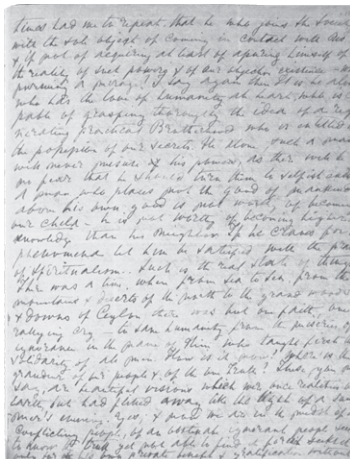 times had me to repeat that he who joins the Society
with the sole object of coming in contact with us
& if not of acquiring at least of assuring himself of
the reality of such powers & of our objective existence
pursuing a mirage. I say again then. It is he alone
who has the love of humanity at heart, who is ca-
pable of grasping thoroughly the idea of a reg-
enerating practical Brotherhood who is entitled to
the possession of our secrets. He alone, such a man
will never misuse his powers, as there will be
no fear that he should turn them to selfish ends.
A man who places not the good of mankind
above his own good is not worthy of becoming
our Chela he is not worthy of becoming higher in
knowledge than his neighbour. If he craves for
phenomena let him be satisfied with the
of Spiritualism. Such is the real state of things
There was a time, when from sea to sea, from the
mountains & deserts of the north to the grand woods
& downs of Ceylon there was but one faith, one
rallying cry to save humanity from the miseries of
ignorance in the name of Him who taught first the
solidarity of all men. How is it now? Where is the
grandeur of our people & of the one Truth? These, you may
say, are beautiful visions which were once realities on
earth but had flitted away like the light of a sum-
mer's evening. Yes, & now we are in the midst of a
conflicting people, of an obstinate ignorant people seeking
to know the truth yet not able to find it for each seeks it
only for his own private benefit & gratification without